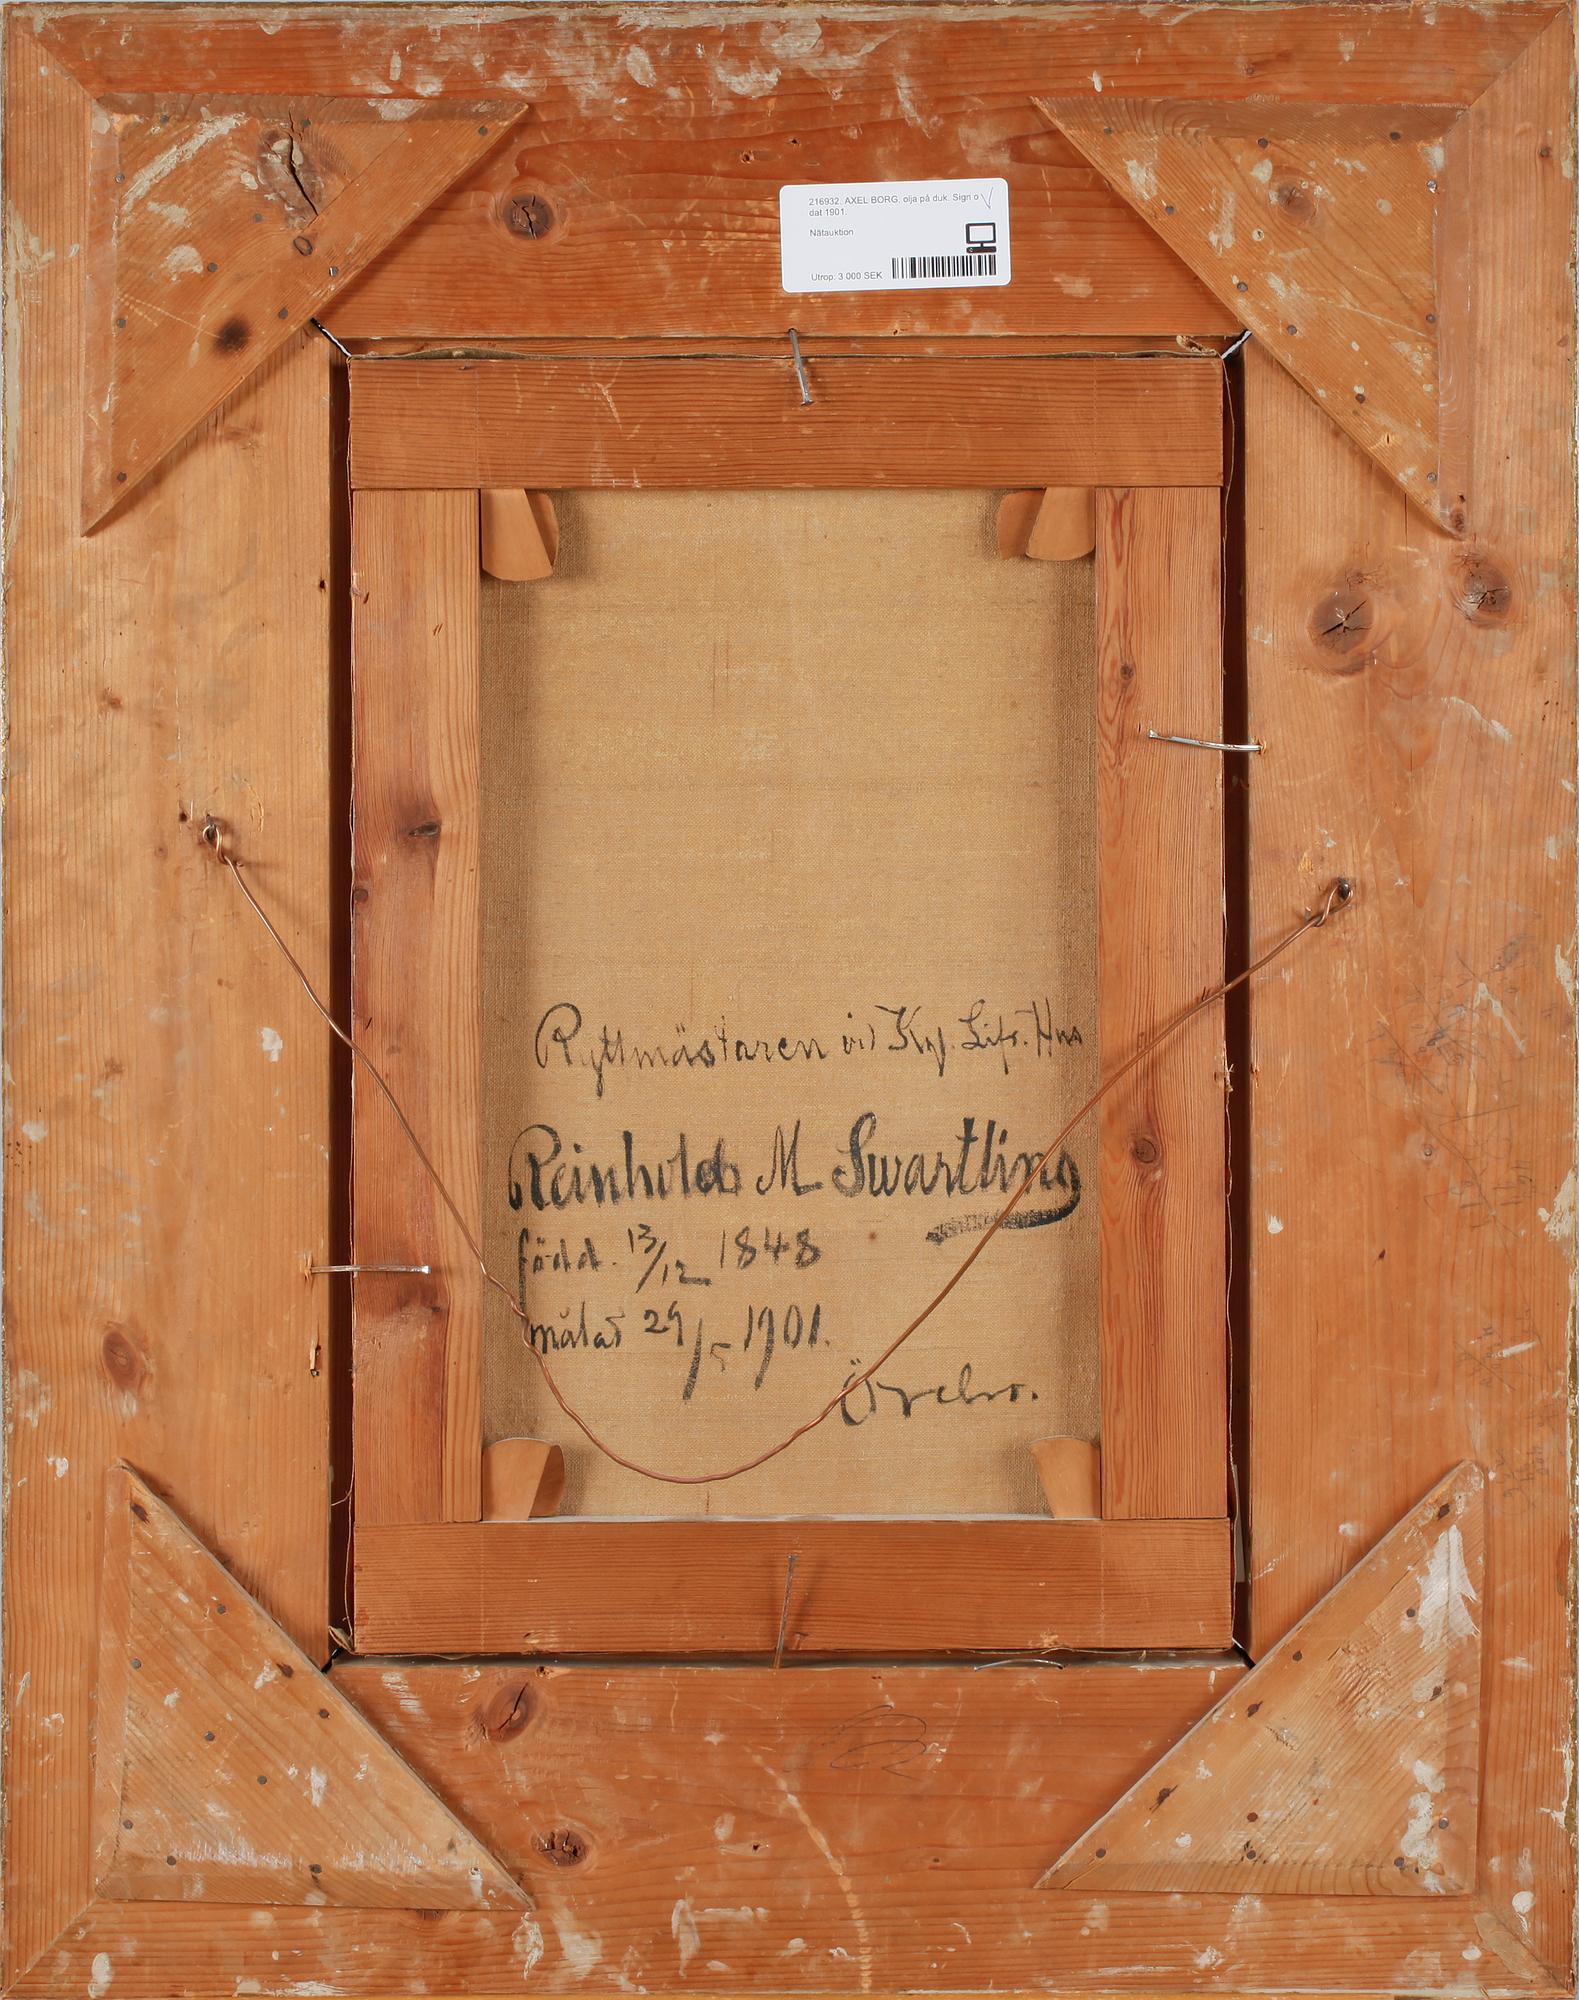 216932. AXEL BORG. olja på duk. Sign o
dat 1901.
Nätauktion
Utrop: 3 000 SEK
Ryttmästaren vid Kgl. Lifr. Hus
Reinhold M Swartling
född. 13/12 1848
målad 29/5 1901.
Örebro.